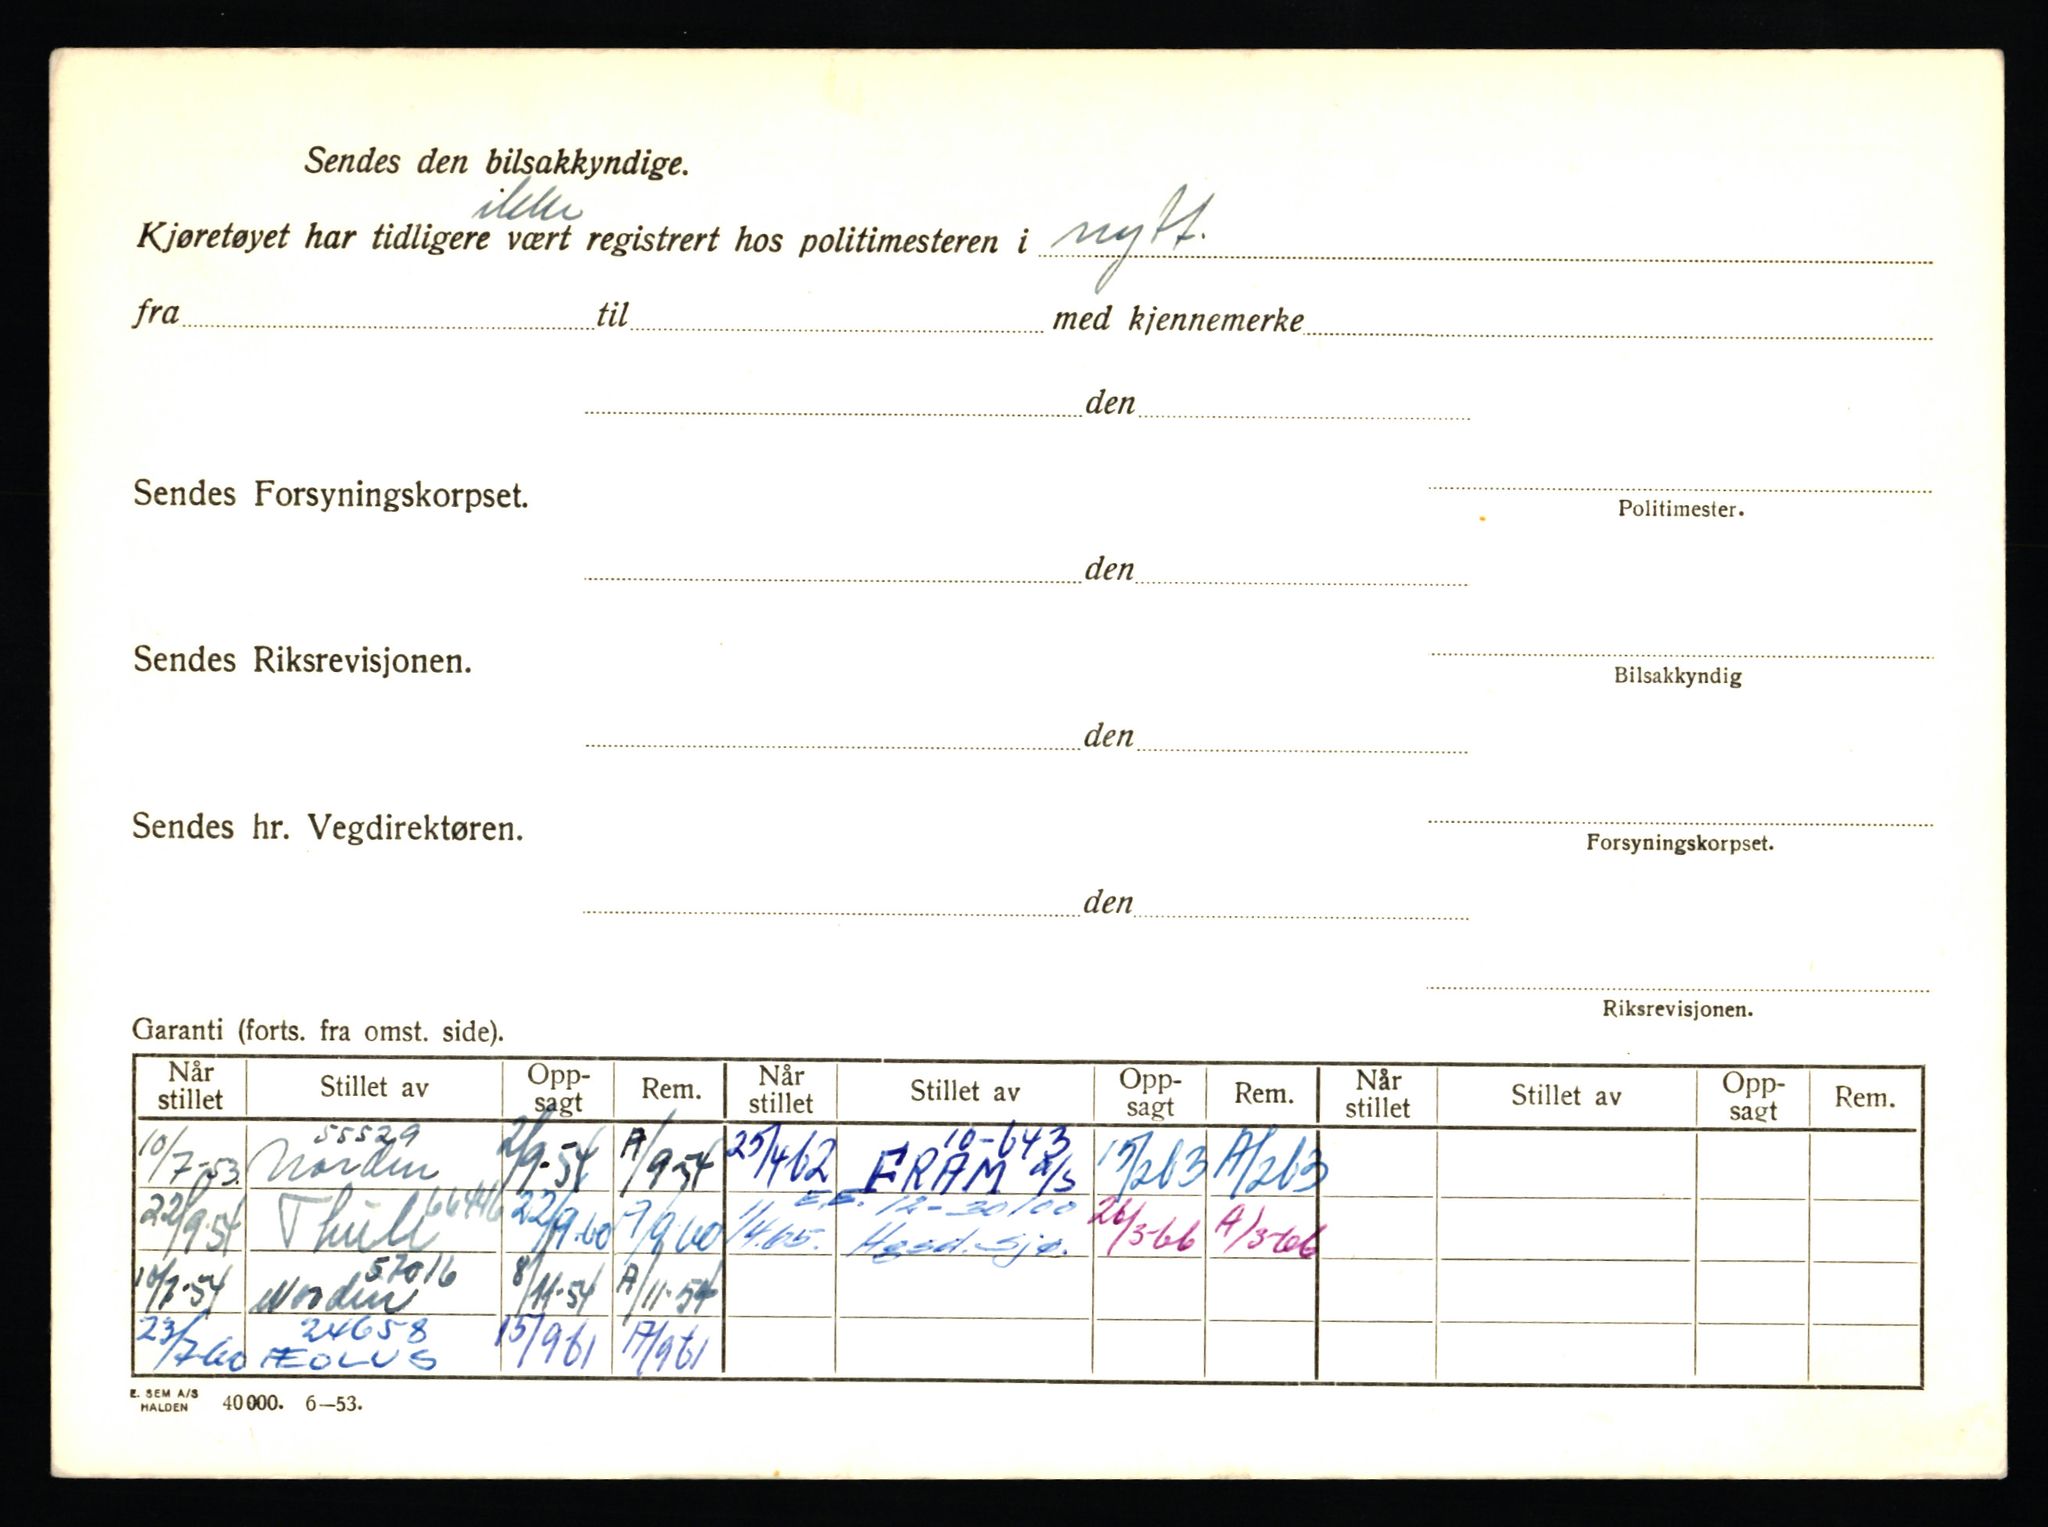 Sendes den bilsakkyndige.
ikke
Kjøretøyet har tidligere vært registrert hos politimesteren i nytt.
fra til med kjennemerke
den
Sendes Forsyningskorpset.
Politimester.
den
Sendes Riksrevisjonen.
Bilsakkyndig
den
Sendes hr. Vegdirektøren.
Forsyningskorpset.
den
Riksrevisjonen.
Garanti (forts. fra omst. side).
Når stillet Stillet av Opp-sagt Rem. Når stillet Stillet av Opp-sagt Rem. Når stillet Stillet av Opp-sagt Rem.
10/7-53. 55529 Norden 2/9-54 A/9-54 25/4 62 10-643 FRAM A/S 15/2 63 A/2 63
22/9-54 Thule 66446 22/9-60 A/9 60 1/4.65. 12-30100 Hgsd. Sjø. 26/3-66 A/3-66
10/7-54 57016 Norden 8/11-54 A/11-54
23/7-60 24658 ÆOLUS 15/9 61 A/9 61
E. SEM A/S
HALDEN 40000. 6—53.